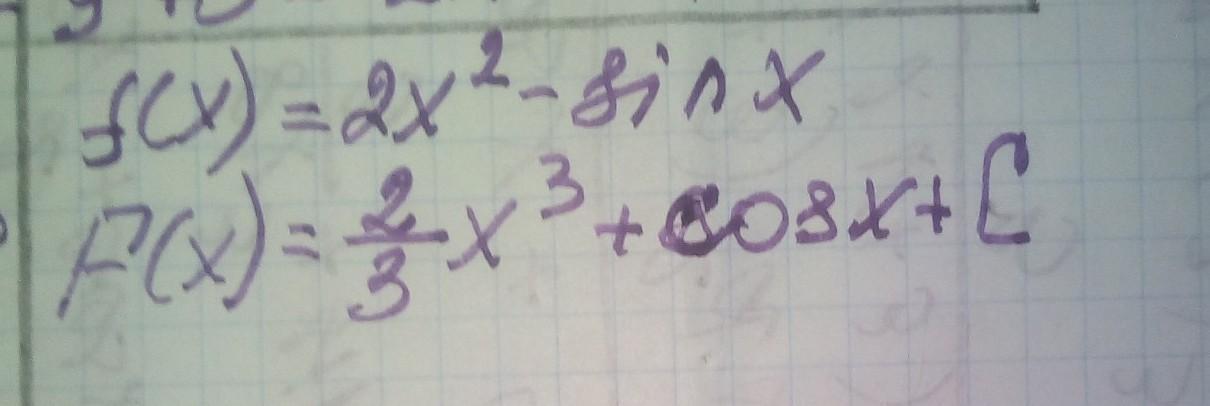 f(x) = 2x² - sin x
F(x) = 2/3 x³ + cos x + C